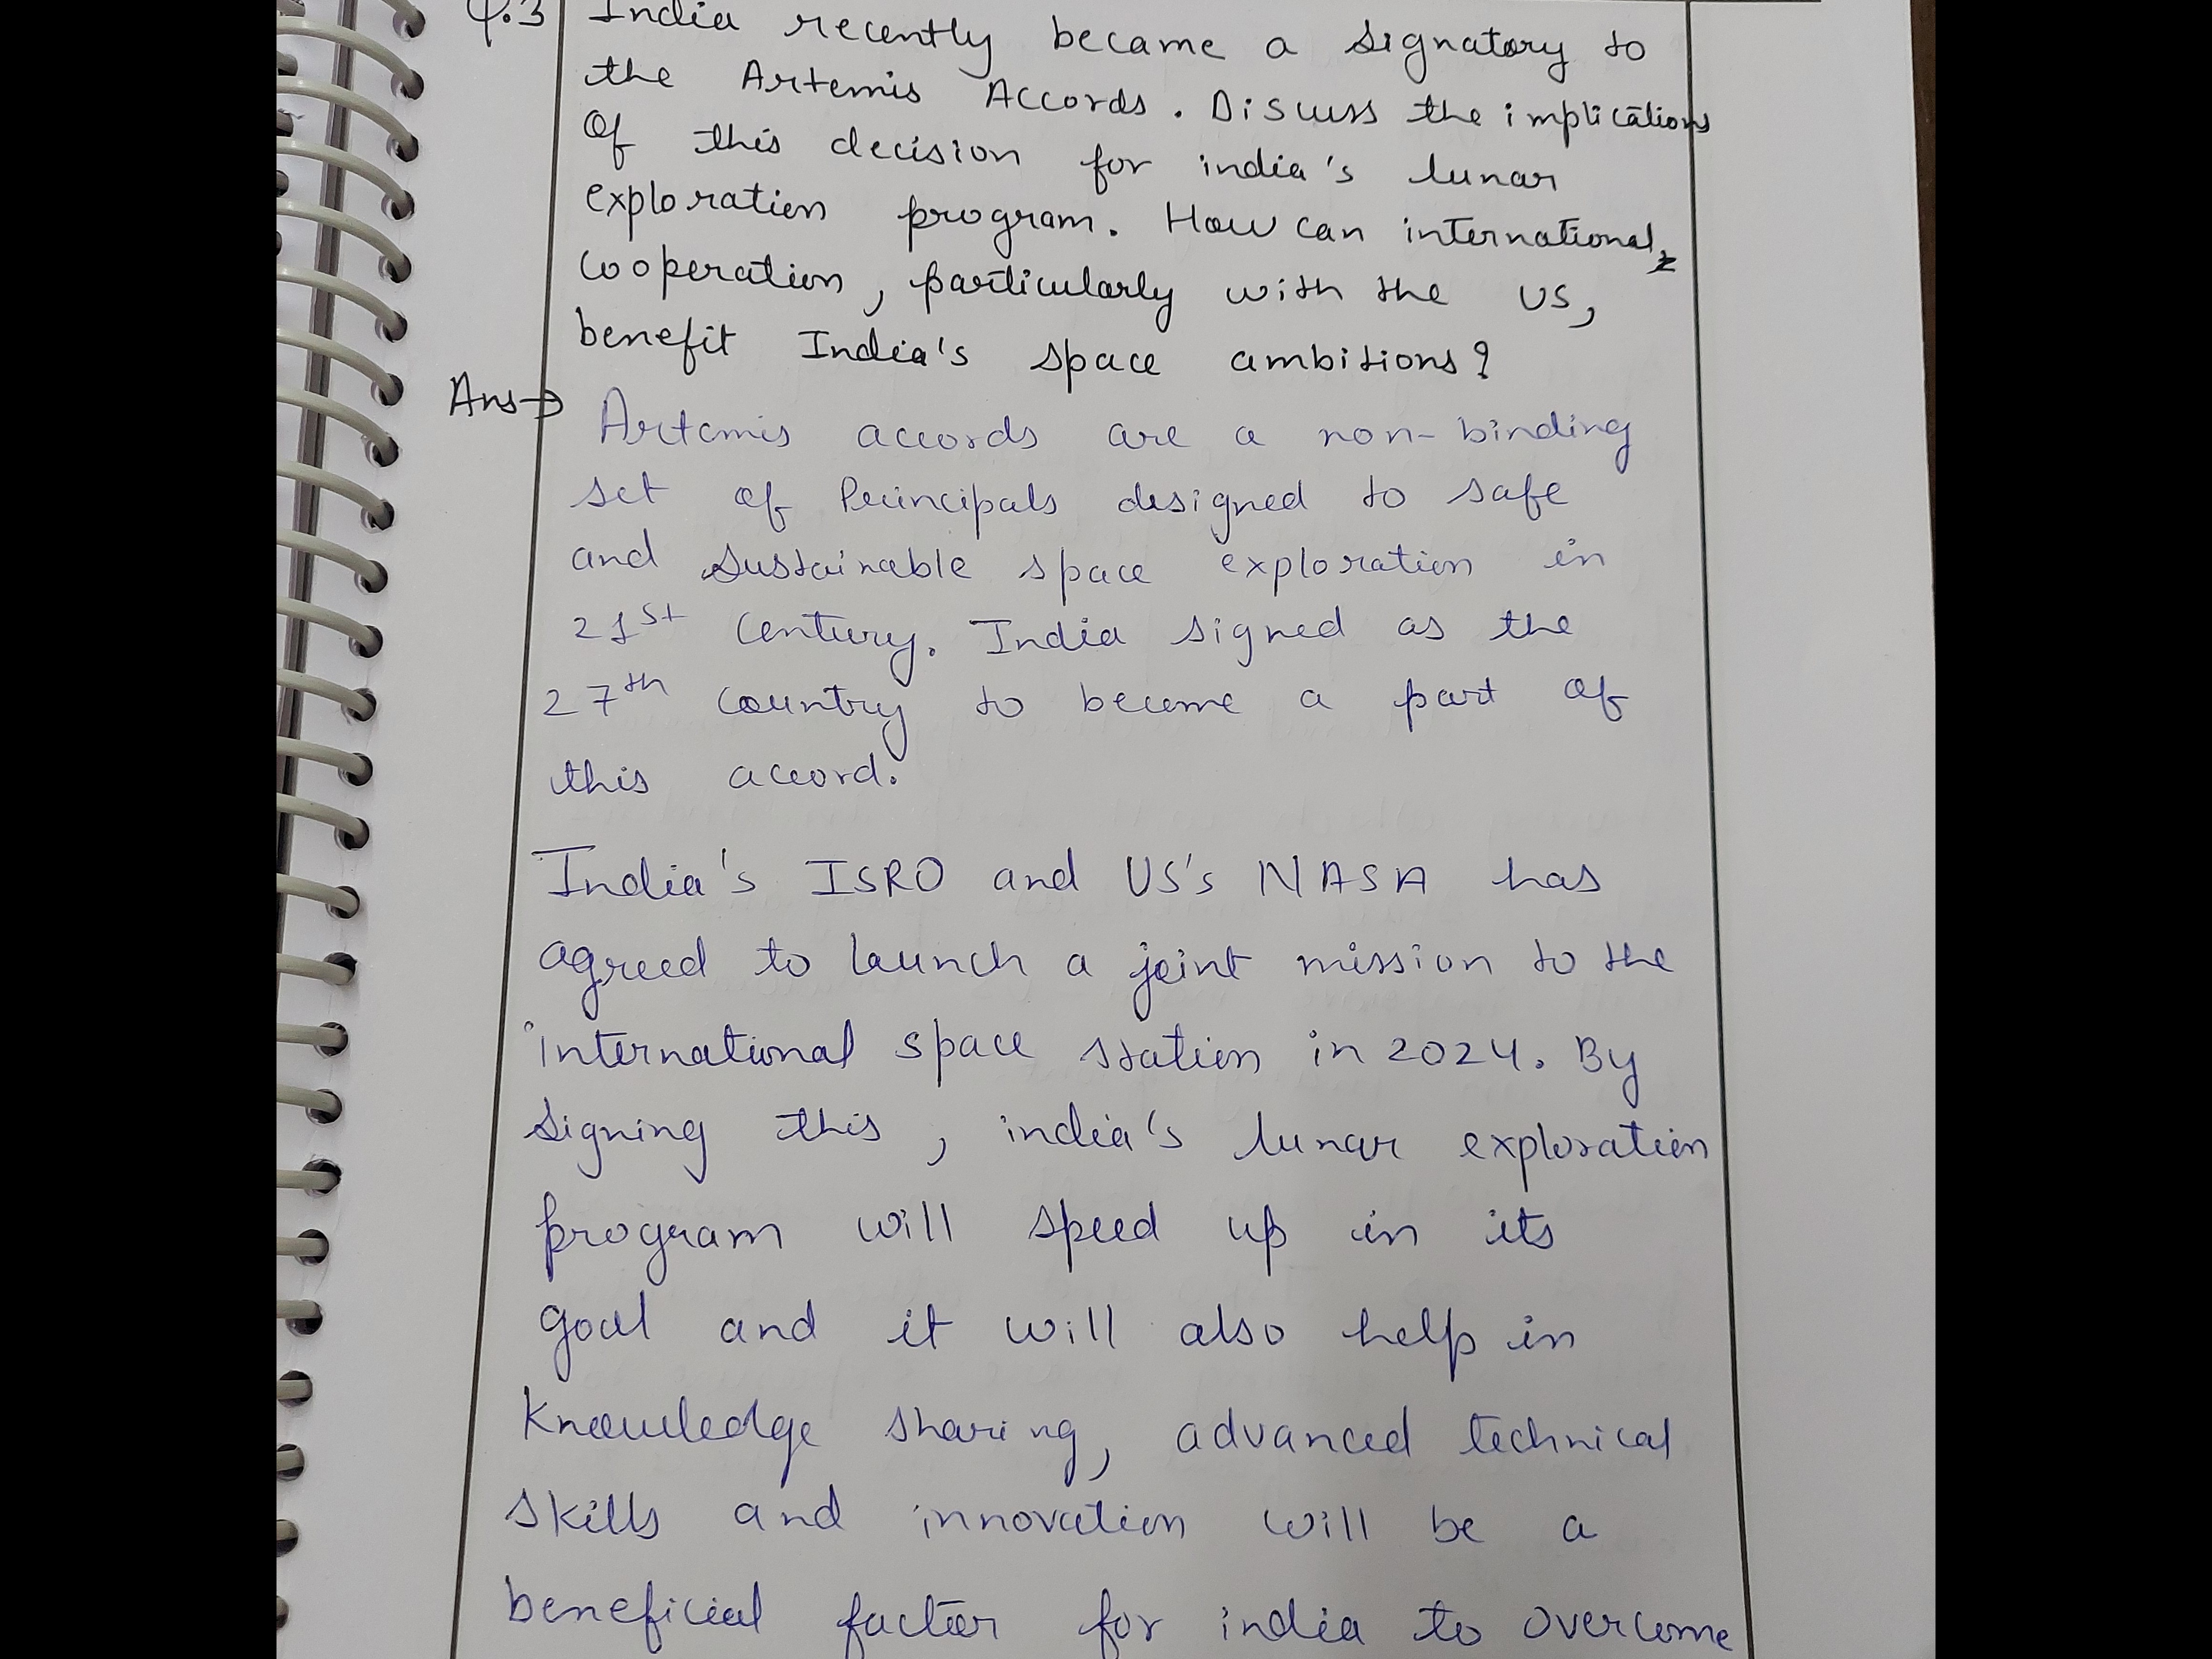 Q.3 India recently became a signatory to
the Artemis Accords. Discuss the implications
of this decision for india's lunar
exploration program. How can international
cooperation, particularly with the US,
benefit India's space ambitions?
Ans→ Artemis accords are a non-binding
set of Principals designed to safe
and sustainable space exploration in
21st Century. India signed as the
27th country to become a part of
this accord.
India's ISRO and US's NASA has
agreed to launch a joint mission to the
international space station in 2024. By
signing this, india's lunar exploration
program will speed up in its
goal and it will also help in
knowledge sharing, advanced technical
skills and innovation will be a
beneficial factor for india to overcome